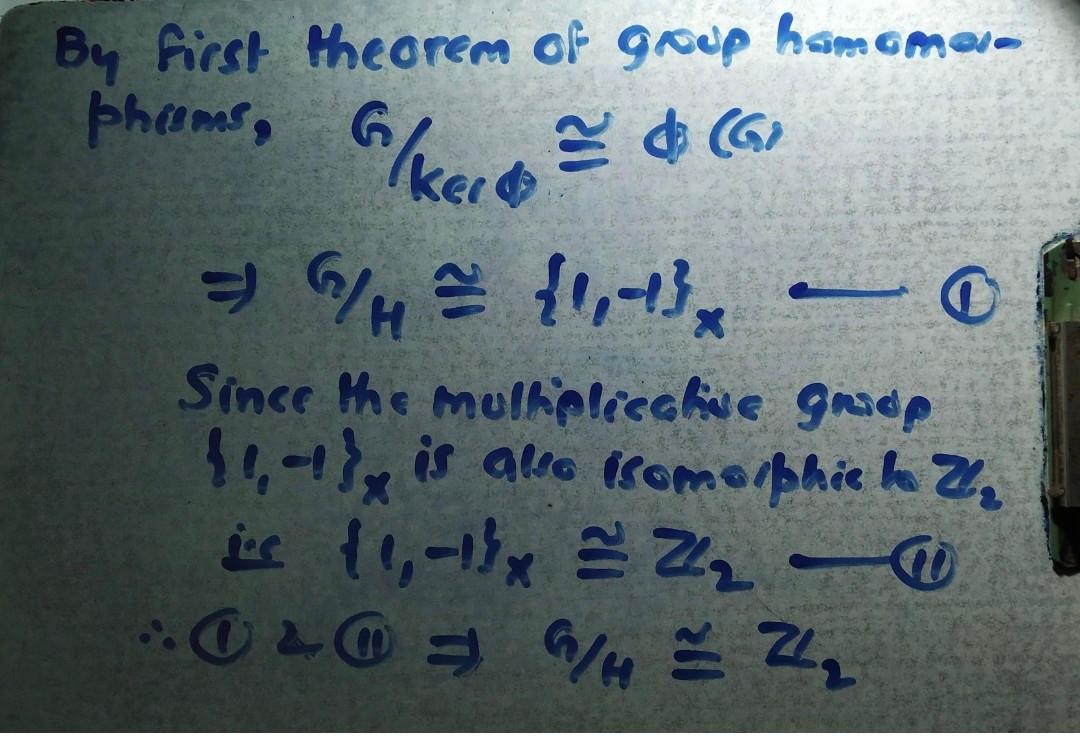 By first theorem of group homomor-
phisms, G/kerφ ≅ φ(G)
⇒ G/H ≅ {1,-1}ₓ — Ⓘ
Since the multiplicative group
{1,-1}ₓ is also isomorphic to ℤ₂
i.e {1,-1}ₓ ≅ ℤ₂ — Ⅱ
∴ Ⓘ & Ⅱ ⇒ G/H ≅ ℤ₂